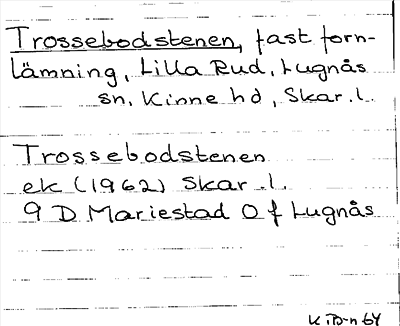 Trossebodstenen, fast forn-
lämning, Lilla Rud, Lugnås
sn, Kinne hd, Skar.l.
Trossebodstenen
ek (1962) Skar.l.
9 D Mariestad Of Lugnås